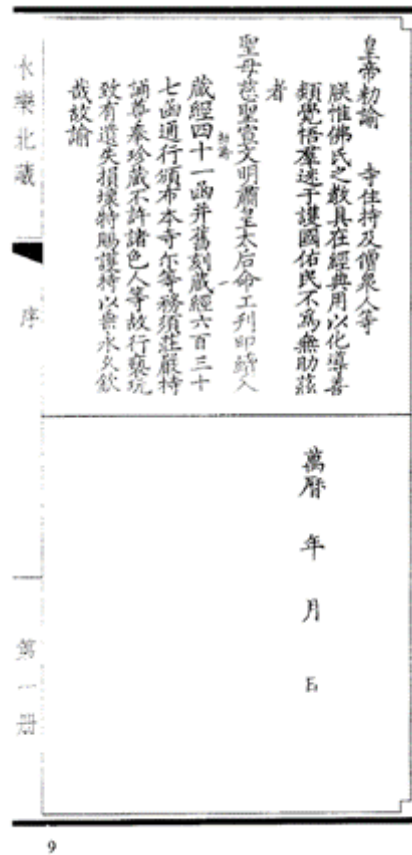 皇帝勅諭　寺住持及僧衆人等
朕惟佛氏之教具在經典用以化導善
類覺悟羣迷于護國佑民不爲無助茲
者
聖母慈聖宣文明肅皇太后命工刊印續入
藏經四十一函并舊刻藏經六百三十
七函通行頒布本寺尔等務須莊嚴持
誦尊奉珍藏不許諸色人等故行褻玩
致有遺失損壞特賜護持以垂永久欽
哉故諭
萬曆　年　月　日
永樂北藏
序
第一册
9